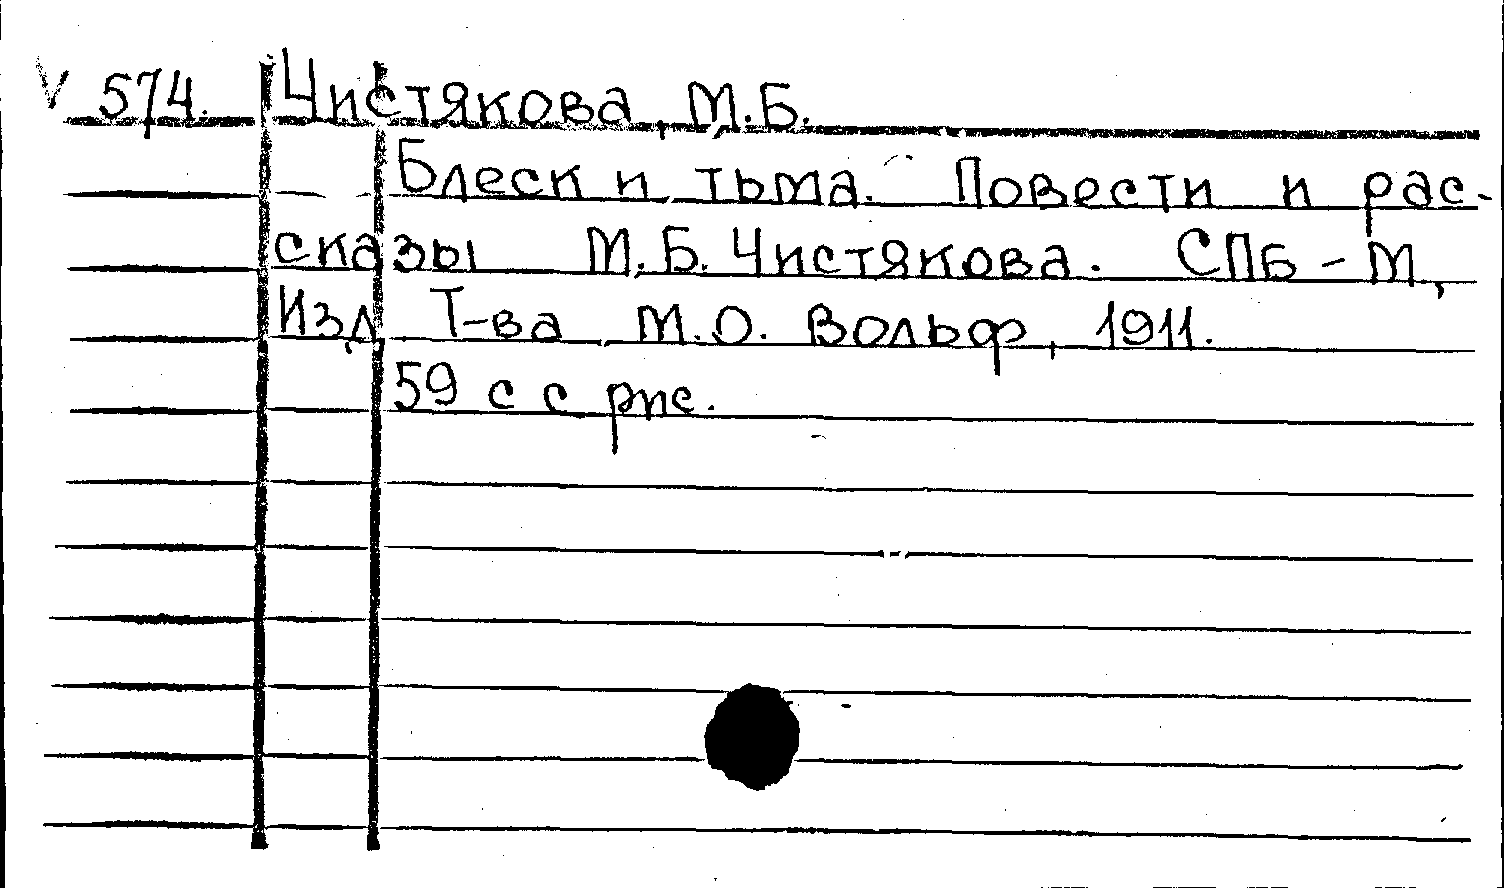 V 574. Чистякова, М.Б.
Блеск и тьма. Повести и рас-
сказы М.Б. Чистякова. СПБ - М,
Изд. Т-ва М.О. Вольф, 1911.
59 с с рис.